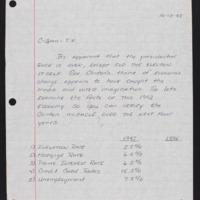 10-15-92
C-Span: T.V.
It's apparent that the presidential
race is over, except for the election
itself. Bill Clinton's theme of economic
change appears to have caught the
media and voter imagination. So let's
examine the facts of this 1992
economy so you can verify the
Clinton miracle over the next four
years.
1992 1996
1) Inflation Rate
2) Mortgage Rate
3) Prime Interest Rate 6.0%
4) Credit Card Rates
5) Unemployment